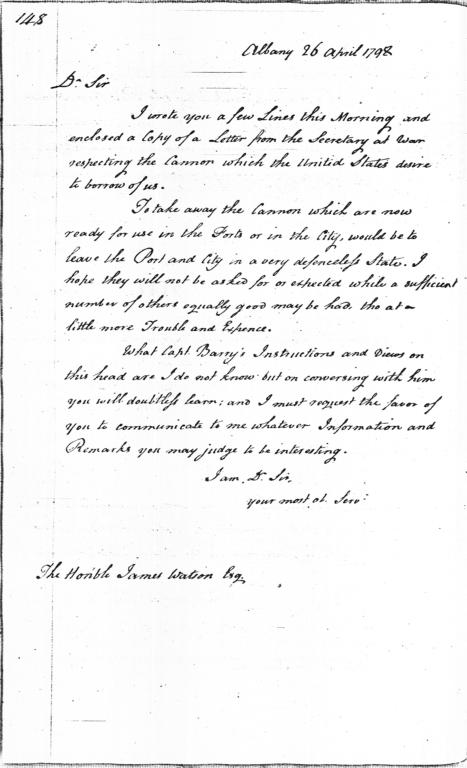 148
Albany 26 April 1798
Dr Sir
I wrote you a few Lines this Morning and
enclosed a Copy of a Letter from the Secretary at War
respecting the Cannon which the United States desire
to borrow of us.
To take away the Cannon which are now
ready for use in the Forts or in the City, would be to
leave the Port and City in a very defenceless State. I
hope they will not be asked for or expected while a sufficient
number of others equally good may be had, tho at a
little more Trouble and Expence.
What Capt Barry's Instructions and Views on
this head are I do not know but on conversing with him
you will doubtless learn; and I must request the favor of
you to communicate to me whatever Information and
Remarks you may judge to be interesting.
I am Dr Sir,
your most ob. Serv:
The Honble James Watson Esq.